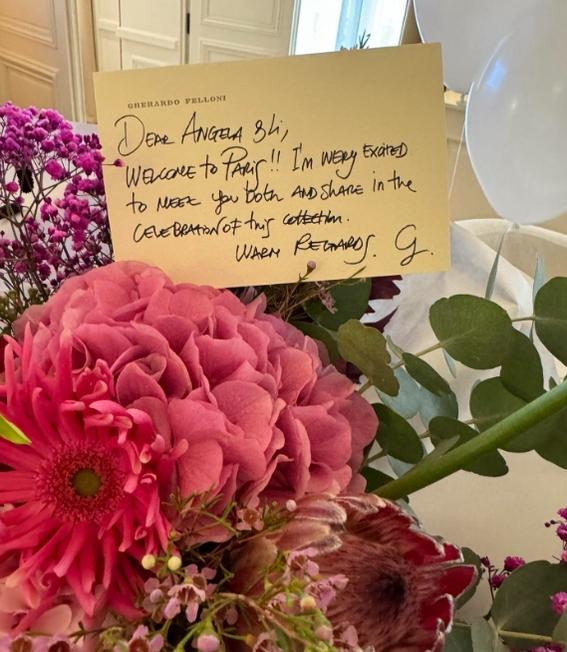 GHERARDO FELLONI
DEAR ANGELA & Li,
WELCOME to PARIS!! I'm VERY EXCITED
to MEET you both AND SHARE in the
CELEBRATION of this collection.
WARM REGARDS. G.